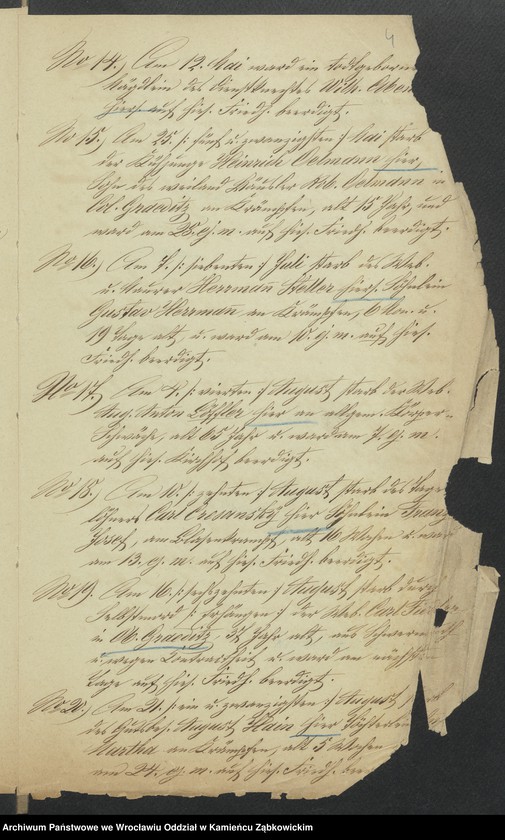 4
No 14.) Am 12. Mai ward ein todtgeborne
Mägdlein des Dienstknechtes Wilh.
hiers. auf hies. Friedh. beerdigt.
No 15.) Am 25. /: fünf u. zwanzigsten :/ Mai starb
der Kuhjunge Heinrich Oelmann hier,
Sohn des weiland Häusler Rob. Oelmann in
Ob. Graeditz an Krämpfen, alt 15 Jahr, und
ward am 28. ej. m. auf hies. Friedh. beerdigt.
No 16.) Am 7. /: siebenten :/ Juli starb des Web.
u. Maurer Herrmann Heller hiers. Söhnlein
Gustav Herrman an Krämpfen, 6 Mon. u.
19 Tage alt, u. ward am 10. ej. m. auf hies.
Friedh. beerdigt.
No 17.) Am 4. /: vierten :/ August starb der Web.
Aug. Anton Löffler hier an allgem. Körper-
Schwäche, alt 65 Jahr u. ward am 7. ej. m.
auf hies. Kirchhof beerdigt.
No 18.) Am 10. /: zehnten :/ August starb des Tage-
löhners Carl hier Söhnlein Franz
Josef, am alt 16 Wochen u. war
am 13. ej. m. auf hies. Friedh. beerdigt.
No 19. Am 16. /: sechszehnten :/ August starb durch
Selbstmord /: Erhängen :/ der Web. Carl
in Ob. Graeditz, Jahr alt, aus Schwermuth
u. wegen u. ward am nächst
Tage auf hies. Friedh. beerdigt.
No 20.) Am 21. /: ein u. zwanzigsten :/ August
des Gutsbes. August Hain hier Töchterlein
Martha an Krämpfen, alt 3 Wochen
am 24. ej. m. auf hies. Friedh. bee
Archiwum Państwowe we Wrocławiu Oddział w Kamieńcu Ząbkowickim